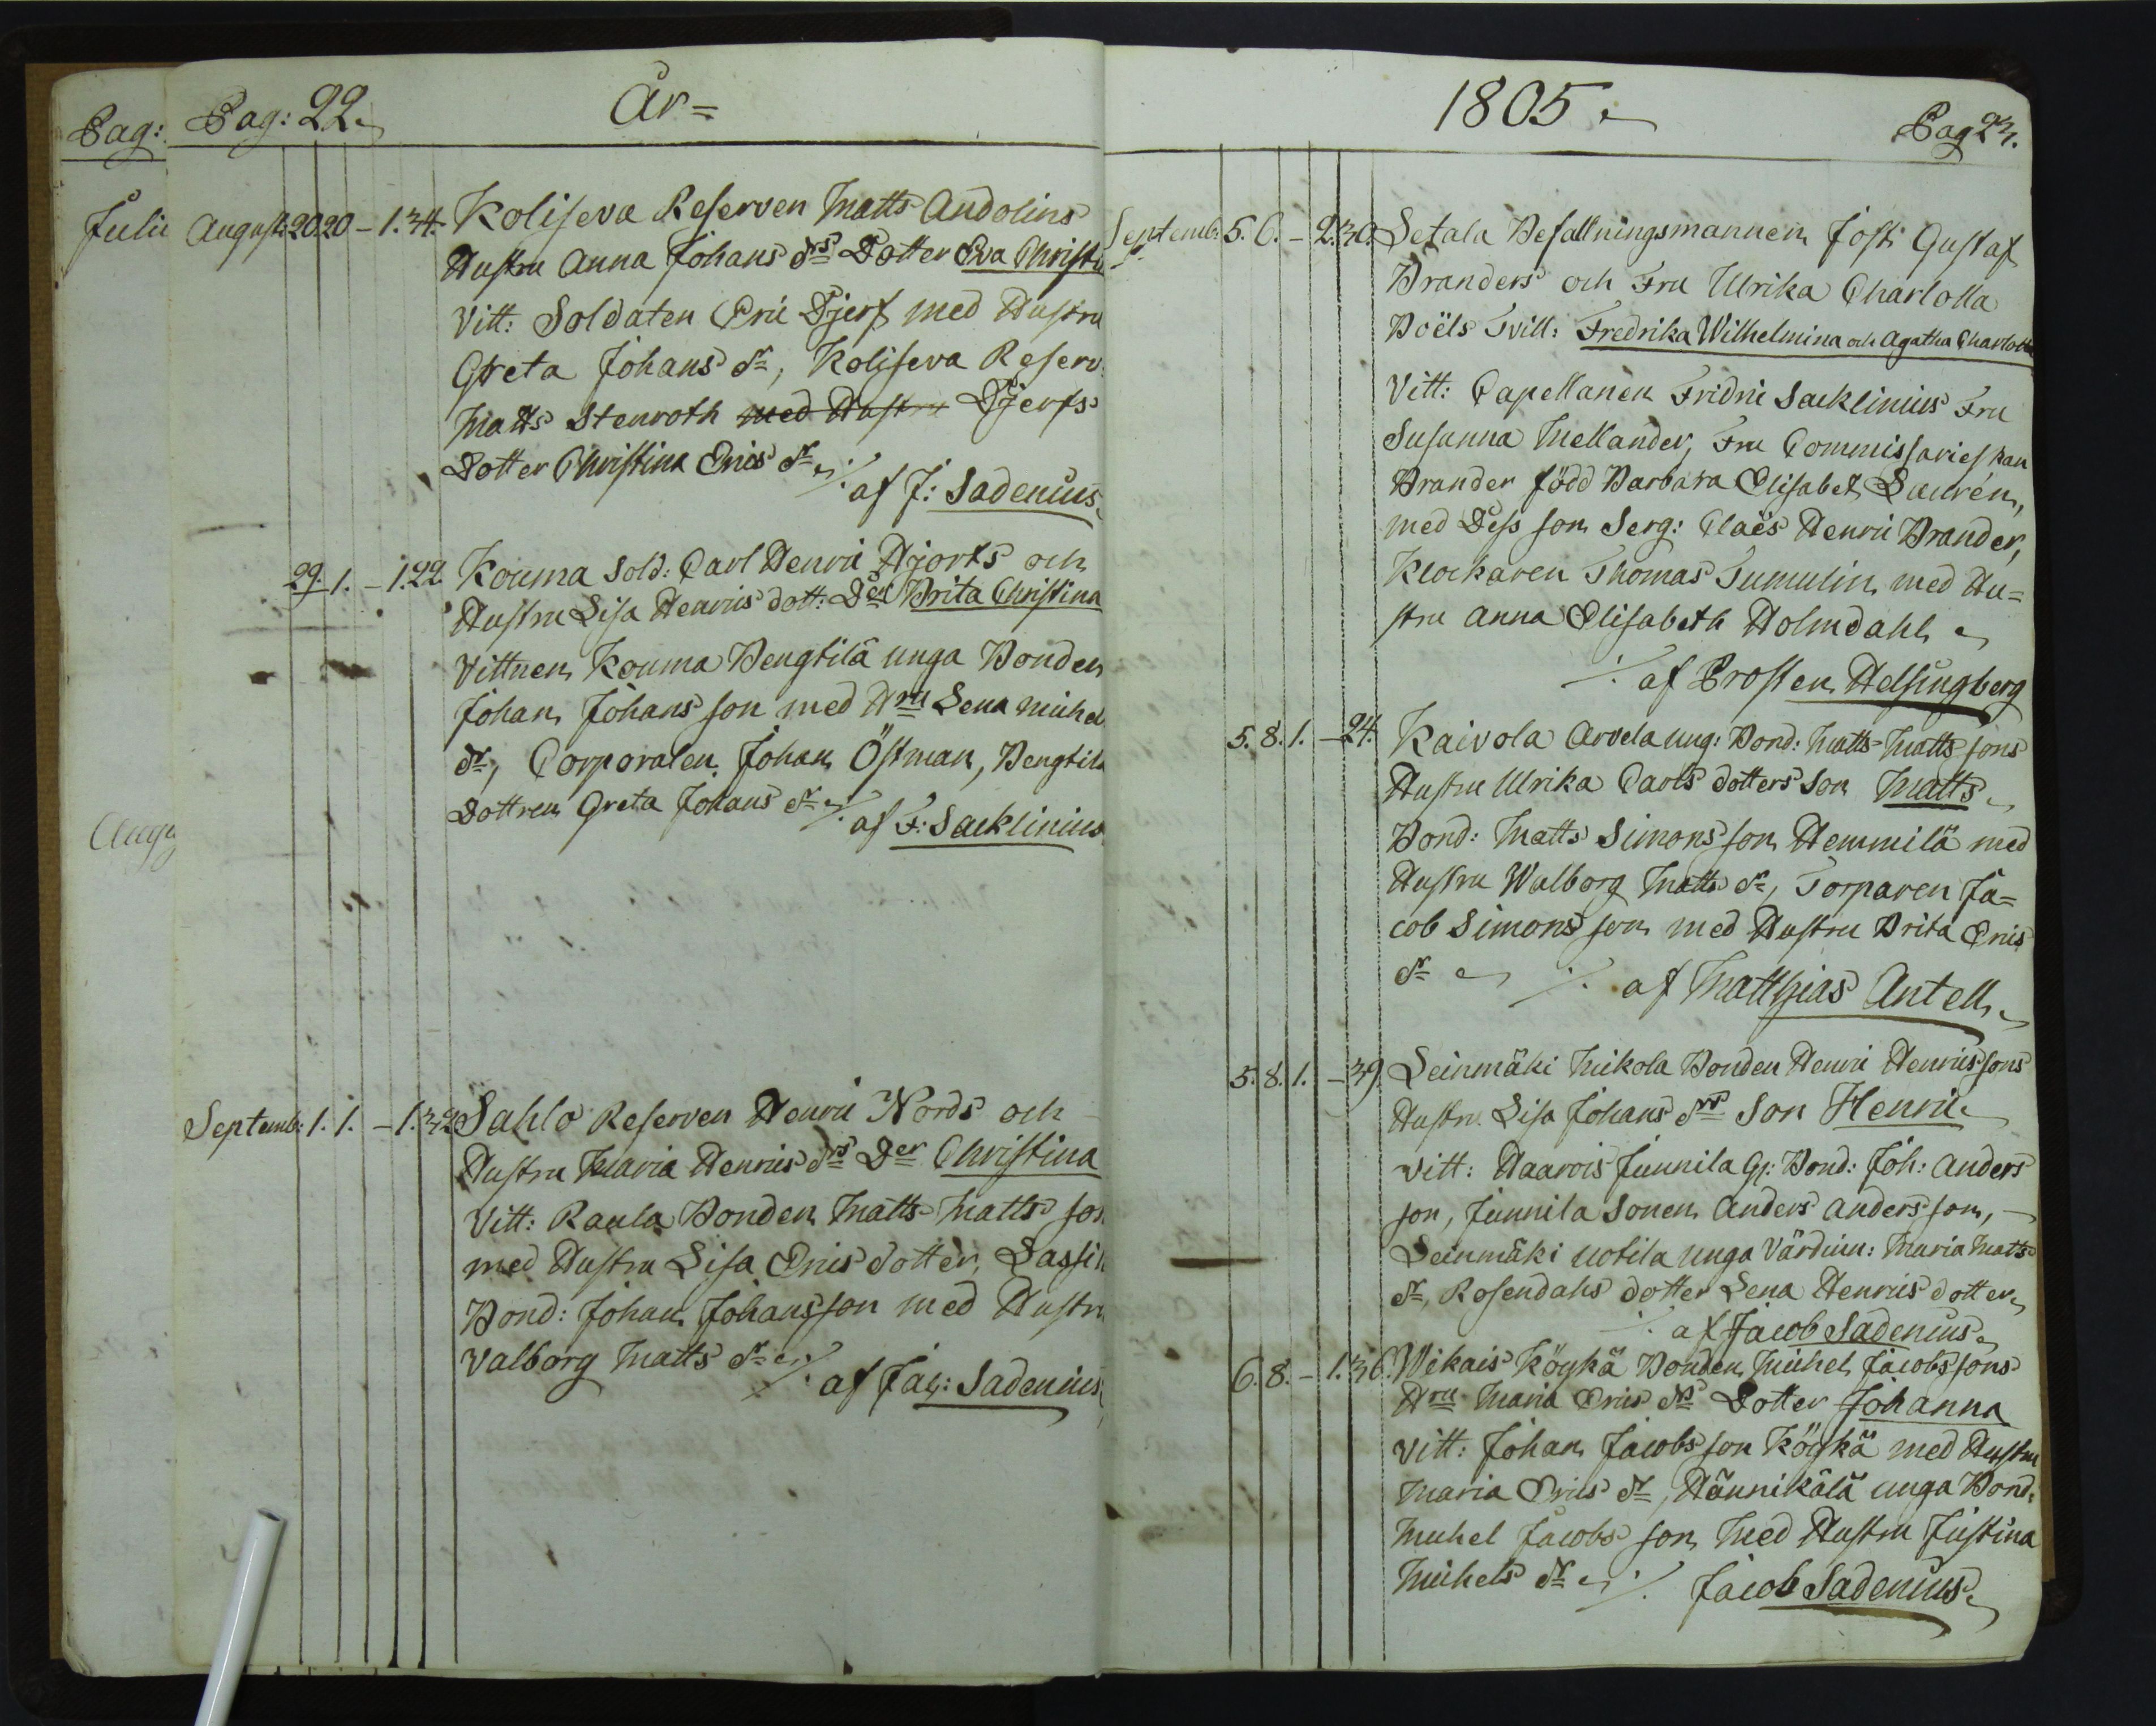 Pag:
Julii
Aug
Pag: 22.
År =
August: 20 20 - 1. 34. Koliseva Reserven Matts Andolins
Hustru Anna Johans drs Dotter Eva Christi
Vitt: Soldaten Eric Djerf med Hustru
Greta Johans dr, Koliseva Reserv.
Matts Stenroth med Hustru Djerfs
Dotter Christina Erics dr ./. af J: Sadenius.
29. 1. - 1. 22. Kouma Sold: Carl Henric Hjorts och
Hustru Lisa Henrics dott: Der Brita Christina
Vittnen, Kouma Bengtilä unga Bonden
Johan Johans son med Hru Lena Michel
dr, Corporalen Johan Östman, Bengtilä
Dottren Greta Johans dr ./. af F: Sacklinius
Septemb: 1. 1. - 1. 32. Sahlo Reserven Henric Nords och
Hustru Maria Henrics drs Der Christina
Vitt: Raula Bonden Matts Matts son
med Hustru Lisa Erics dotter, Lassil
Bond: Johan Johansson med Hustru
Valborg Matts dr ./. af Jac: Sadenius
1805.
Pag 23.
Septemb: 5. 6. - 2. 30. Setala Befallningsmannen Josh Gustaf
Branders och Fru Ulrika Charlotta
Boëls Tvill: Fredrika Wilhelmina och Agatha Charlotta
Vitt: Capellanen Fridric Sacklinius Fru
Susanna Mellander, Fru Commissarieskan
Brander född Barbara Elisabet Lauren,
med Dess son Serg: Claës Henric Brander,
Klockaren Thomas Tumulin med Hu=
stru Anna Elisabeth Holmdahl
./. af Prosten Helsingberg
5. 8. 1. - 24. Kaivola Arvela ung: Bond: Matts Matts sons
Hustru Ulrika Carls dotters Son Matts
Bond: Matts Simons son Hemmilä med
Hustru Walborg Matts dr, Torparen Ja=
cob Simons son med Hustru Brita Erics
dr ./. af Matthias Antell
5. 8. 1. - 39. Leinmäki Mikola Bonden Henric Henricssons
Hustru Lisa Johans drs Son Henric
Vitt: Haarois Junnila Gl: Bond: Joh: Anders
son, Junnila Sonen Anders Andersson, -
Leinmäki Uotila unga Värdinn: Maria Matts
dr, Rosendahls dotter Lena Henrics dotter
./. af Jacob Sadenius
6. 8. - 1. 36. Wikais Köykä Bonden Michel Jacobssons
Hru Maria Erics drs Dotter Johanna
Vitt: Johan Jacobs son Köykä med Hustru
Maria Erics dr, Hännikälä unga Bond.
Michel Jacobs son Med Hustru Justina
Michels dr ./. Jacob Sadenius